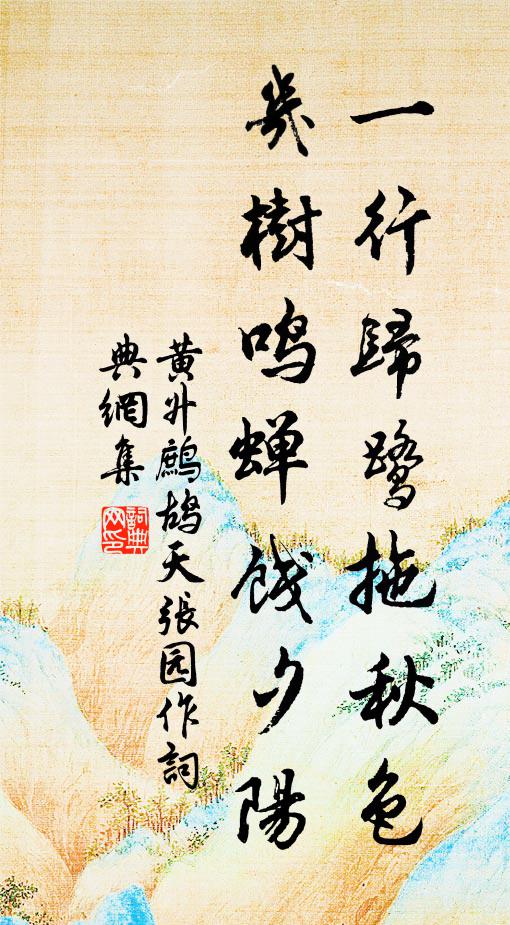 一行歸鷺拖秋色
幾樹鳴蟬餞夕陽
黄升鷓鴣天張园作詞
典網集
詞典網印